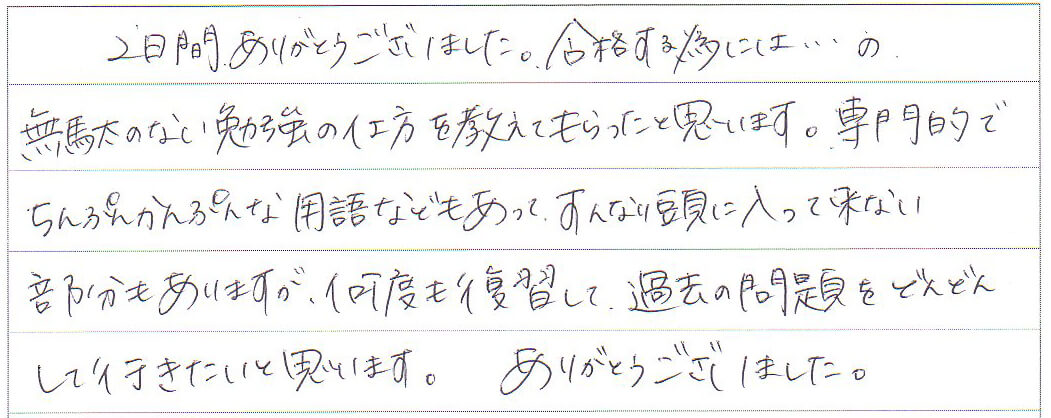 2日間、ありがとうございました。合格する為には…の
無駄のない勉強の仕方を教えてもらったと思います。専門的で
ちんぷんかんぷんな用語などもあって、すんなり頭に入って来ない
部分もありますが、何度も復習して、過去の問題をどんどん
して行きたいと思います。 ありがとうございました。